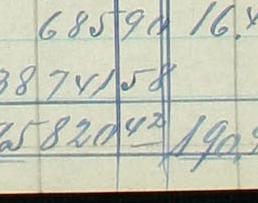 68590 16.4
38 74158
65820 42 190.9